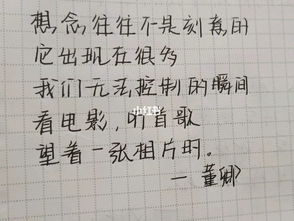 想念往往不是刻意的
它出现在很多
我们无法控制的瞬间
小红书
看电影,听首歌
望着一张相片时。
—董卿